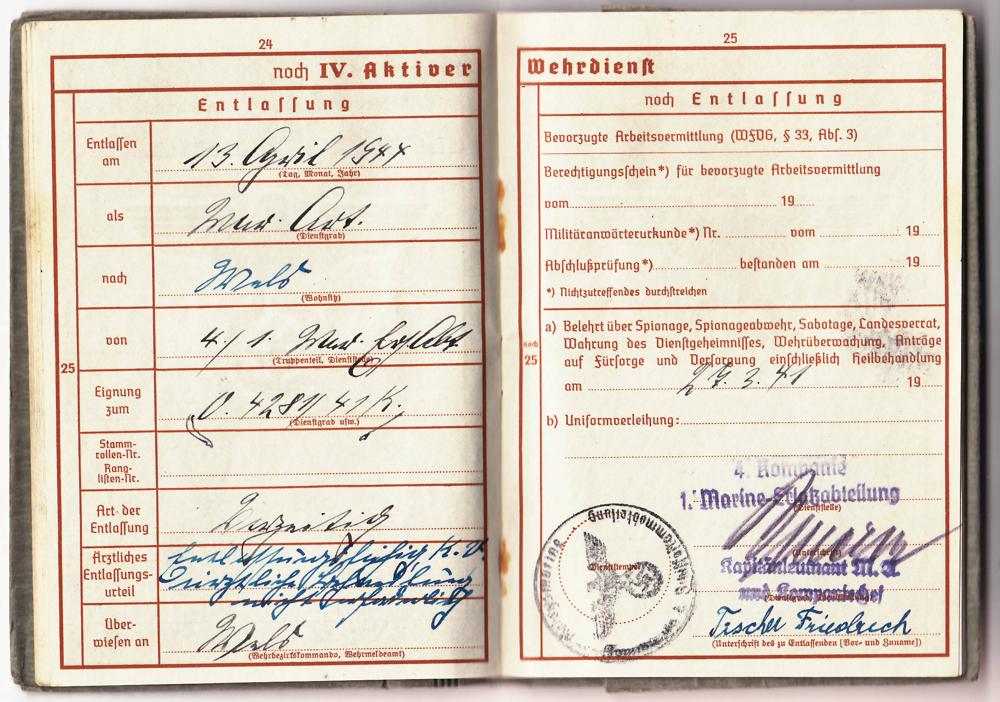 24
noch IV. Aktiver
Entlassung
Entlassen am
13. April 1944
(Tag, Monat, Jahr)
als
Mar. Art.
(Dienstgrad)
nach
Wels
(Wohnsitz)
von
4/ 1. Mar. Ers. Abt
(Truppenteil, Dienststelle)
Eignung zum
(Dienstgrad usw.)
25
Stamm-
rollen-Nr.
Rang-
listen-Nr.
Art der
Entlassung
Ärztliches
Entlassungs-
urteil
Über-
wiesen an
Wels
(Wehrbezirkskommando, Wehrmeldeamt)
25
Wehrdienst
noch Entlassung
Bevorzugte Arbeitsvermittlung (WFVG, § 33, Abs. 3)
Berechtigungsschein*) für bevorzugte Arbeitsvermittlung
vom 19
Militäranwärterurkunde*) Nr. vom 19
Abschlußprüfung*) bestanden am 19
*) Nichtzutreffendes durchstreichen
noch
25
a) Belehrt über Spionage, Spionageabwehr, Sabotage, Landesverrat,
Wahrung des Dienstgeheimnisses, Wehrüberwachung, Anträge
auf Fürsorge und Versorgung einschließlich Heilbehandlung
am 27. 3. 41 19
b) Uniformverleihung:
4. Kompanie
1. Marine-Ersatzabteilung
(Dienststelle)
(Unterschrift)
Kapitänleutnant M. A.
und Kompaniechef
Dienststempel
Tischer Friedrich
(Unterschrift des zu Entlassenden [Vor- und Zuname])